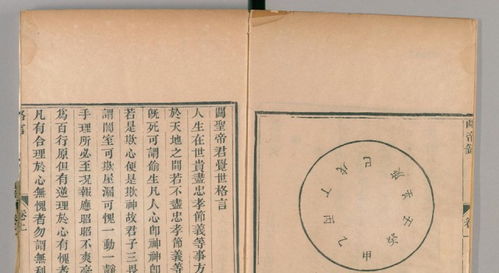 甲
乙
丙
丁
戊
己
庚
辛
壬
癸
關聖帝君覺世格言
人生在世貴盡忠孝節義等事方
於天地之間若不盡忠孝節義等
旣死可謂偷生凡人心卽神神卽
若是欺心便是欺神故君子三畏
謂闇室可欺屋漏可愧一動一靜
手理所必至況報應昭昭不爽毫
爲百行原但有逆理於心有愧者
凡有合理於心無愧者勿謂無利